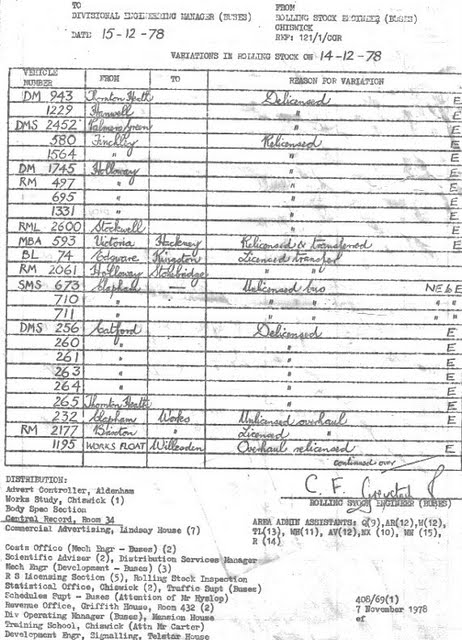 TO
DIVISIONAL ENGINEERING MANAGER (BUSES)
FROM
ROLLING STOCK ENGINEER (BUSES)
CHISWICK
REF: 121/1/CGR
DATE 15-12-78
VARIATIONS IN ROLLING STOCK ON 14-12-78
VEHICLE NUMBER FROM TO REASON FOR VARIATION
DM 943 Thornton Heath Delicensed E
1229 Hanwell " E
DMS 2452 Palmers Green " E
580 Finchley Relicensed E
1564 " " E
DM 1745 Holloway " E
RM 497 " " E
695 " " E
1331 " " E
RML 2600 Stockwell " E
MBA 593 Victoria Hackney Relicensed & transferred E
BL 74 Edgware Kingston Licensed transfer E
RM 2061 Holloway Stonbridge " E
SMS 673 Clapham — Unlicensed bus NE & E
710 " " " "
711 " " " "
DMS 256 Catford Delicensed E
260 " " E
261 " " E
263 " " E
264 " " E
265 Thornton Heath " E
232 Clapham Works Unlicensed overhaul E
RM 2177 Brixton " Licensed "
1195 WORKS FLOAT Willesden Overhaul relicensed E
continued over
DISTRIBUTION:
Advert Controller, Aldenham
Works Study, Chiswick (1)
Body Spec Section
Central Record, Room 34
Commercial Advertising, Lindsay House (7)
ROLLING STOCK ENGINEER (BUSES)
AREA ADMIN ASSISTANTS: Q(9), AB(12), W(12),
TL(13), MH(11), AV(12), NX (10), MW (15),
R (14)
Costs Office (Mech Engr - Buses) (2)
Scientific Adviser (2), Distribution Services Manager
Mech Engr (Development - Buses) (3)
R S Licensing Section (5), Rolling Stock Inspection
Statistical Office, Chiswick (2), Traffic Supt (Buses)
Schedules Supt - Buses (Attention of Mr Hyslop)
Revenue Office, Griffith House, Room 432 (2)
Div Operating Manager (Buses), Mansion House
Training School, Chiswick (Attn Mr Carter)
Development Engr, Signalling, Telstar House
408/69(1)
7 November 1978
ef